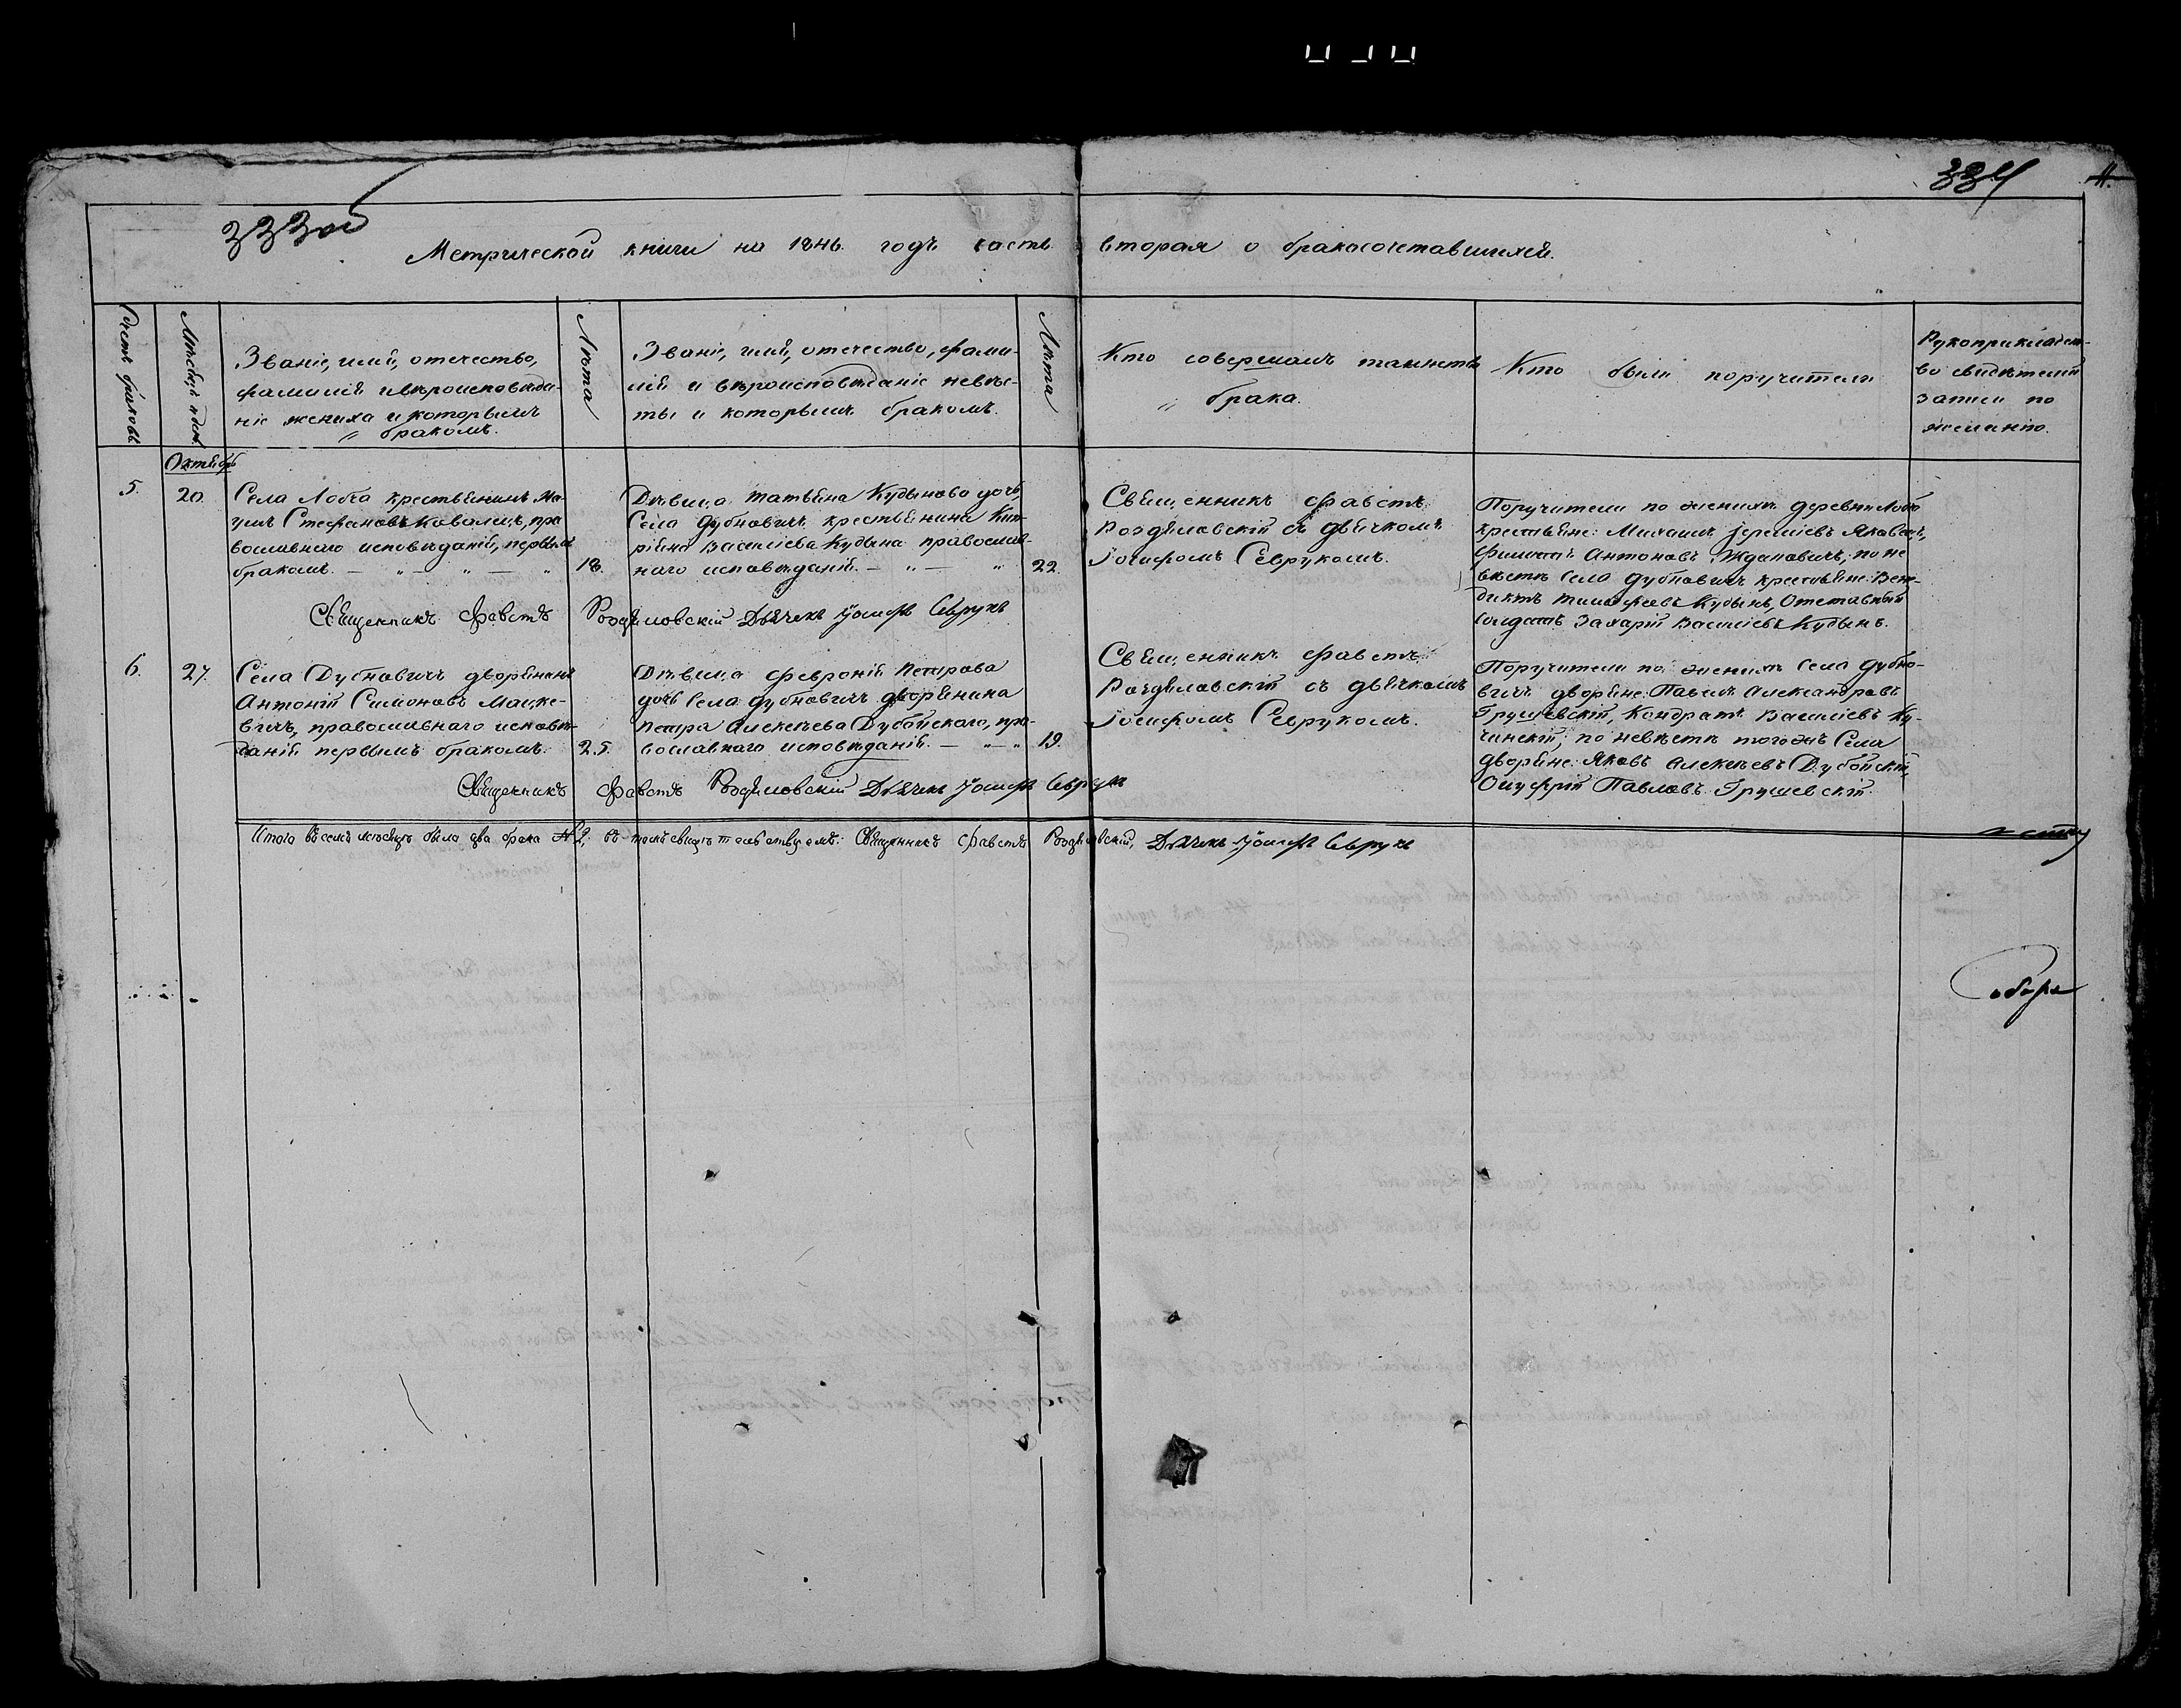 334
333об
Метрической книги на 1846. годъ часть вторая о бракосочетавшихся.
Счетъ браковъ
Мѣсяцъ и дни.
Званіе, имя, отечество,
фамилія и вѣроисповѣда-
ніе жениха и которымъ
„ бракомъ.
Лѣта
Званіе, имя, отечество, фами-
лія и вѣроисповѣданіе невѣс-
ты и которымъ бракомъ.
Лѣта
Кто совершалъ таинство
„ брака.
Кто были поручители
Рукоприкладст-
во свидѣтелей
записи по
желанію.
Октябрь
5.
20.
Села Лобча крестьянинъ
Стефановъ Ковалецъ, пра
вославнаго исповѣданія, первымъ
бракомъ. — „ — „ — „
18.
Дѣвица Татьяна Кудынова дочь,
Села Дубновичъ крестьянина Кип-
ріяна Васильева Кудына православ-
наго исповѣданія. — „ — „
22.
Священникъ Фавстъ
Роздяловскій съ дьячкомъ
Іосифомъ Севрукомъ.
Поручители по женихѣ деревни Лобчо
крестьяне: Михаилъ
Антоновъ Ждановичъ, по не
вѣстѣ Села Дубновичъ крестьяне: Вен-
диктъ Тимофеевъ Кудынъ, Отставный
Солдатъ Захарій Васильевъ Кудынъ.
Священникъ Фавстъ Роздяловскій Дьячекъ Іосифъ Севрукъ
6.
27.
Села Дубновичъ дворянинъ
Антоній Симоновъ Мацке-
вичъ, православнаго исповѣ-
данія первымъ бракомъ.
25.
Дѣвица Февронія Петрова
дочь Села Дубновичъ дворянина
Петра Алексѣева Дубойскаго, пра-
вославнаго исповѣданія. — „ — „
19.
Священникъ Фавстъ
Роздяловскій съ дьячкомъ
Іосифомъ Севрукомъ.
Поручители по женихѣ Села Дубно-
вичъ дворяне: Павелъ Александровъ
Грушевскій, Кондратъ Васильевъ Ку-
чинскій, по невѣстѣ тогожъ Села
дворяне: Яковъ Алексѣевъ Дубойскій,
Онуфрій Павловъ Грушевскій.
Священникъ Фавстъ Роздяловскій Дьячекъ Іосифъ Севрукъ
Итого въ семъ мѣсяцѣ было два брака № 2, въ томъ свидѣтельствуемъ: Священникъ Фавстъ Роздяловскій, Дьячекъ Іосифъ Севрукъ